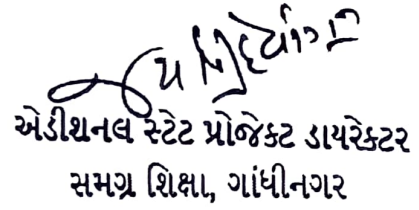 એડીશનલ સ્ટેટ પ્રોજેક્ટ ડાયરેક્ટર
સમગ્ર શિક્ષા, ગાંધીનગર